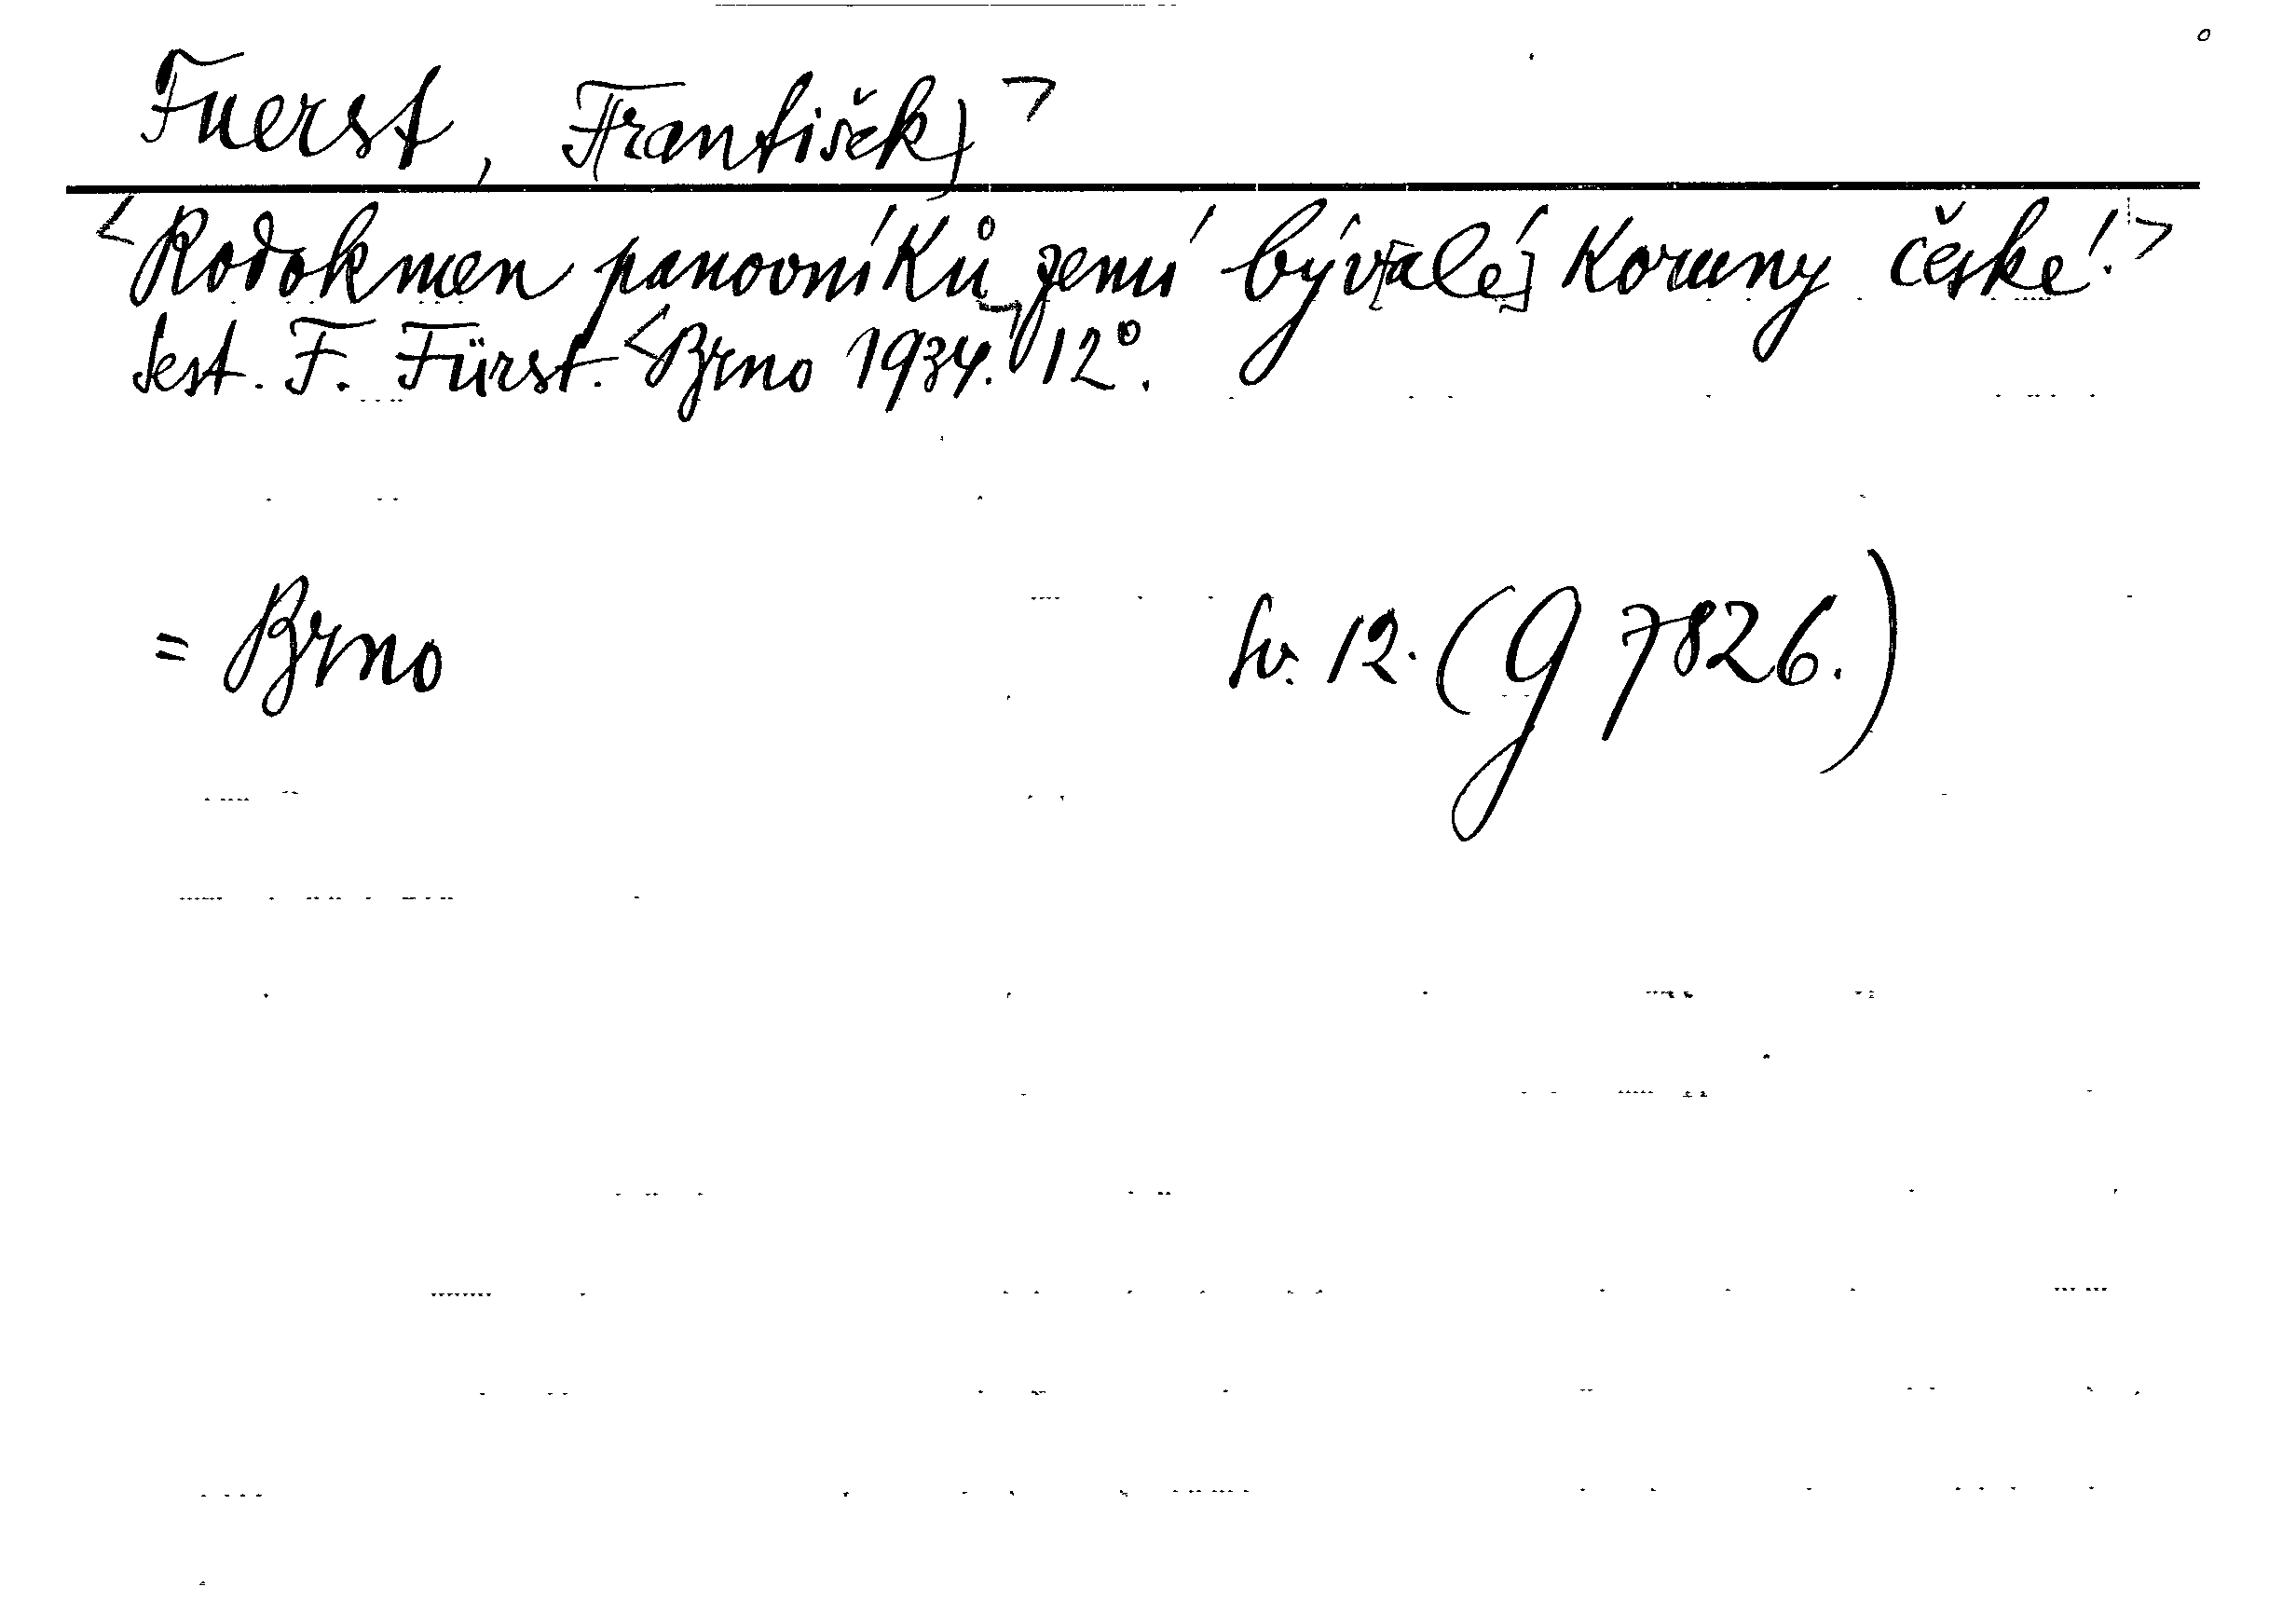 Fuerst, František)˺
<Rodokmen panovníků zemí býv[alé] Koruny české.>
Sest. F. Fürst. <Brno 1934.> 12°.
= Brno Sv. 12. (G 7826.)